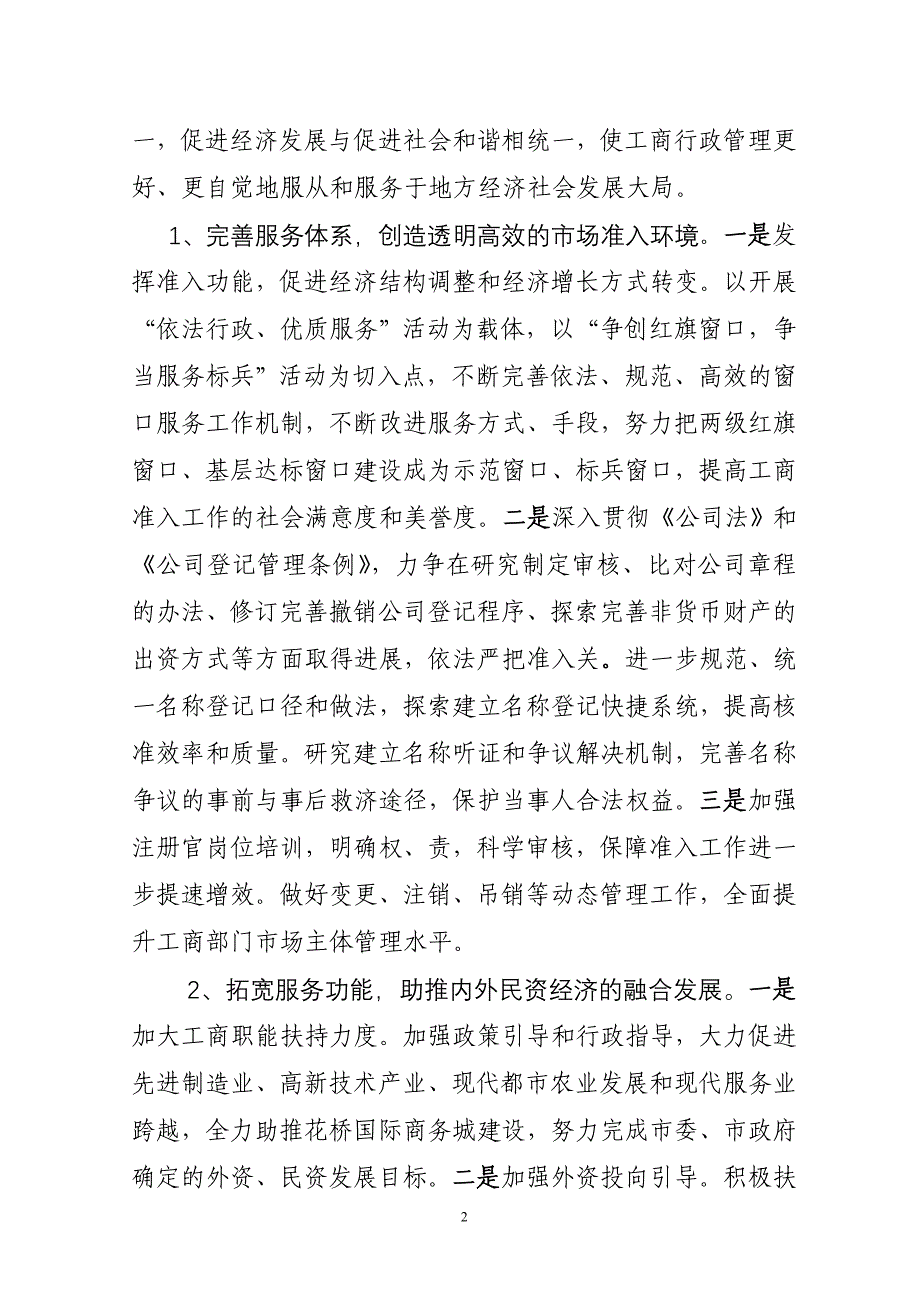 一，促进经济发展与促进社会和谐相统一，使工商行政管理更
好、更自觉地服从和服务于地方经济社会发展大局。
1、完善服务体系，创造透明高效的市场准入环境。一是发
挥准入功能，促进经济结构调整和经济增长方式转变。以开展
“依法行政、优质服务”活动为载体，以“争创红旗窗口，争
当服务标兵”活动为切入点，不断完善依法、规范、高效的窗
口服务工作机制，不断改进服务方式、手段，努力把两级红旗
窗口、基层达标窗口建设成为示范窗口、标兵窗口，提高工商
准入工作的社会满意度和美誉度。二是深入贯彻《公司法》和
《公司登记管理条例》，力争在研究制定审核、比对公司章程
的办法、修订完善撤销公司登记程序、探索完善非货币财产的
出资方式等方面取得进展，依法严把准入关。进一步规范、统
一名称登记口径和做法，探索建立名称登记快捷系统，提高核
准效率和质量。研究建立名称听证和争议解决机制，完善名称
争议的事前与事后救济途径，保护当事人合法权益。三是加强
注册官岗位培训，明确权、责，科学审核，保障准入工作进一
步提速增效。做好变更、注销、吊销等动态管理工作，全面提
升工商部门市场主体管理水平。
2、拓宽服务功能，助推内外民资经济的融合发展。一是
加大工商职能扶持力度。加强政策引导和行政指导，大力促进
先进制造业、高新技术产业、现代都市农业发展和现代服务业
跨越，全力助推花桥国际商务城建设，努力完成市委、市政府
确定的外资、民资发展目标。二是加强外资投向引导。积极扶
2